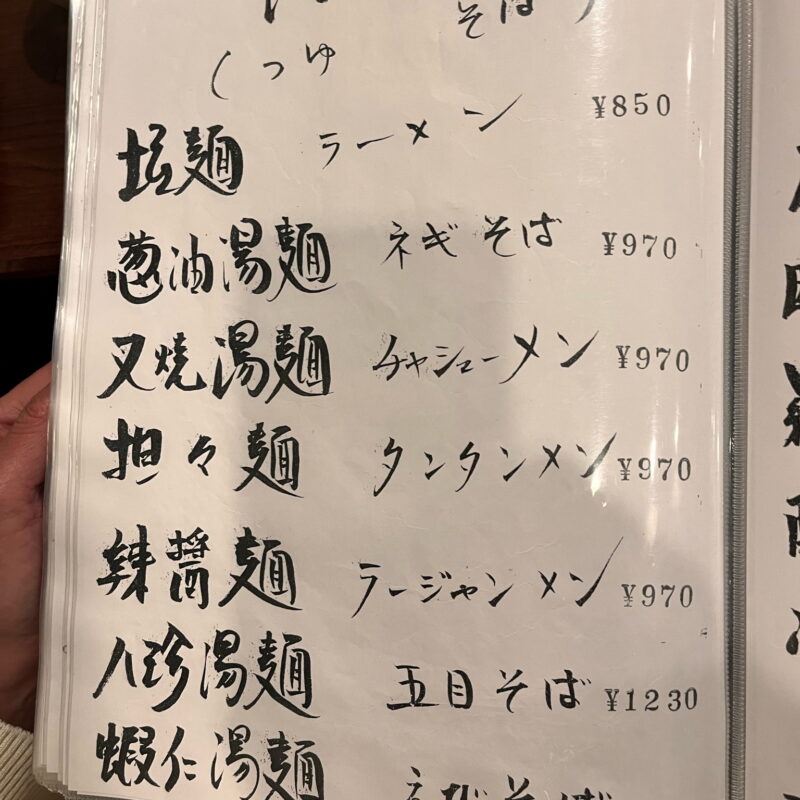 そば
しつゆ
拉麺 ラーメン ¥850
葱油湯麺 ネギそば ¥970
叉焼湯麺 チャシューメン ¥970
担々麺 タンタンメン ¥970
辣醤麺 ラージャンメン ¥970
八珍湯麺 五目そば ¥1230
蝦仁湯麺 えびそば